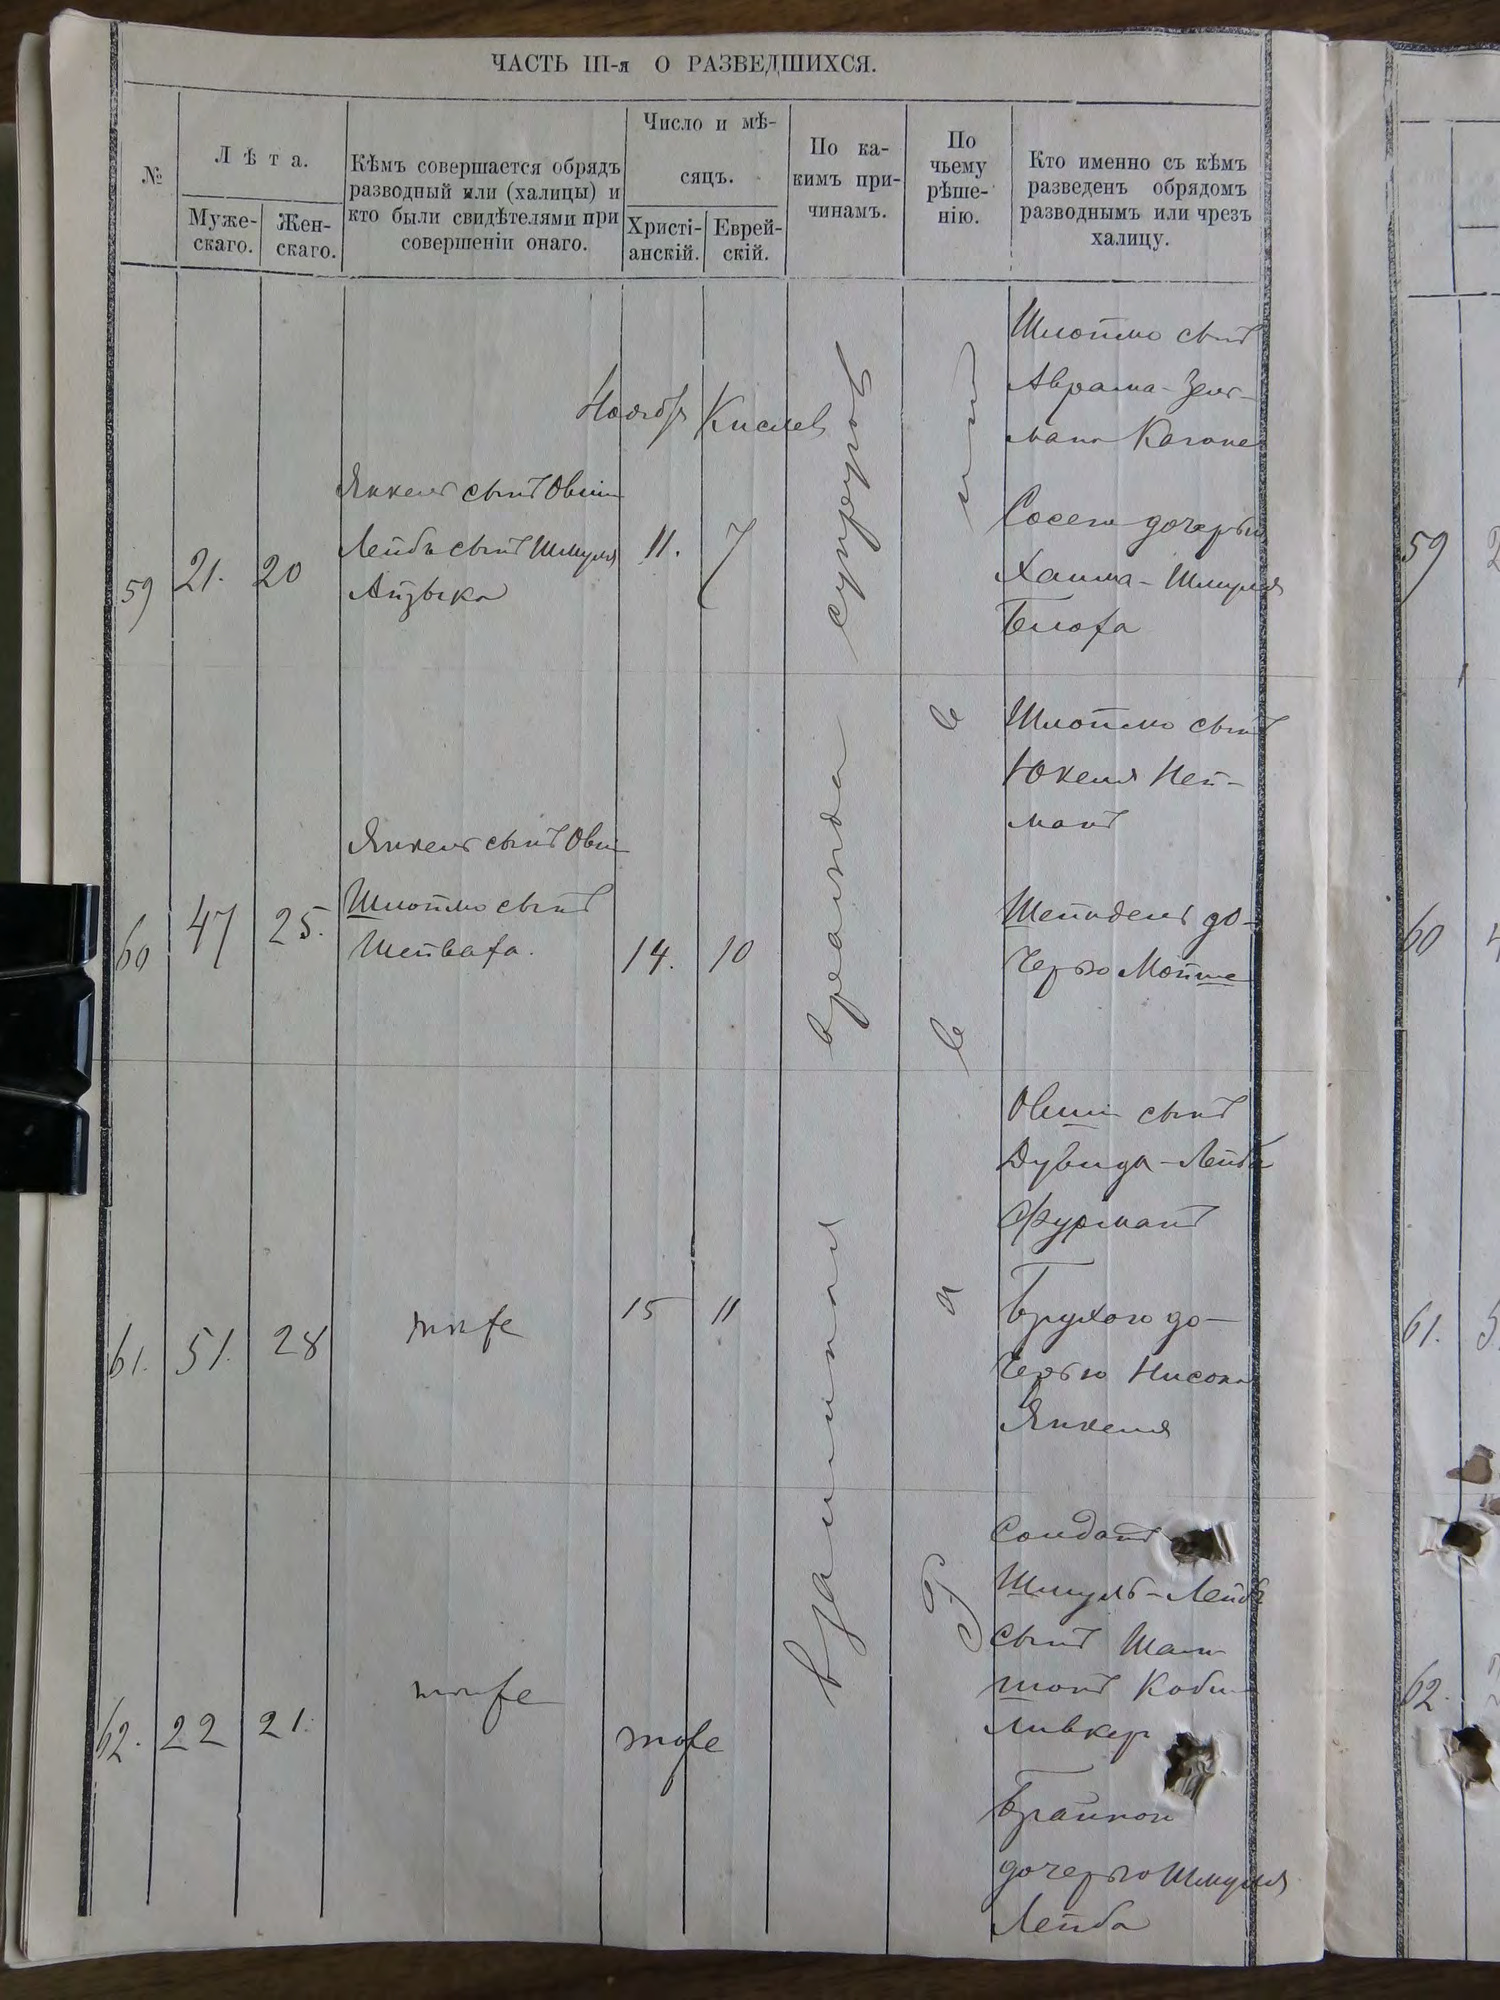 ЧАСТЬ III-я О РАЗВЕДШИХСЯ.
№
Лѣта.
Муже-
скаго.
Жен-
скаго.
Кѣмъ совершается обрядъ
разводный или (халицы) и
кто были свидѣтелями при
совершеніи онаго.
Число и мѣ-
сяцъ.
Христі-
анскій.
Еврей-
скій.
По ка-
кимъ при-
чинамъ.
По
чьему
рѣше-
нію.
Кто именно съ кѣмъ
разведенъ обрядомъ
разводнымъ или чрезъ
халицу.
Ноябр
Кислев
59
21.
20
Янкель сынъ Овши
Лейба сынъ Шмуля
Айзыка
11.
7
Шлоймо сынъ
Аврама-Зель-
мана Кагане
Сосею дочерью
Хаима-Шмуля
Блоха
60
47
25.
Янкель сынъ Овши
Шлоймо сынъ
14.
10
Шлоймо сынъ
Юкеля Ней-
манъ
Шейндель до-
черью Мойше
61.
51.
28
тиже
15
11
Овши сынъ
Дувида-Лейба
Фурманъ
Брухою до-
черью Нисона
Янкеля
62.
22
21.
тиже
тоже
Солдатъ
Шмуль-Лейба
сынъ
дочерью Шмуля
Лейба
взаимная
вражда
супругов
Раввин
59
60
61.
62.